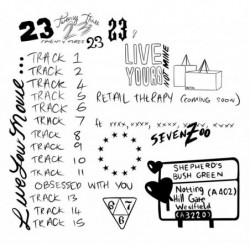 23
23
TWENTY THREE
23
23
LIVE
YOURS
NOT MINE
Live Your Movie...
TRACK 1
TRACK 2
TRACK 4
TRACK 5
TRACK 6
TRACK 7
TRACK 8
TRACK 9
TRACK 10
TRACK 11
OBSESSED WITH YOU
TRACK 13
TRACK 14
TRACK 15
RETAIL THERAPY (COMING SOON)
SEVENZOO
6
7
7
SHEPHERD'S
BUSH GREEN
Notting (A402)
Hill Gate
Westfield
(A3220)